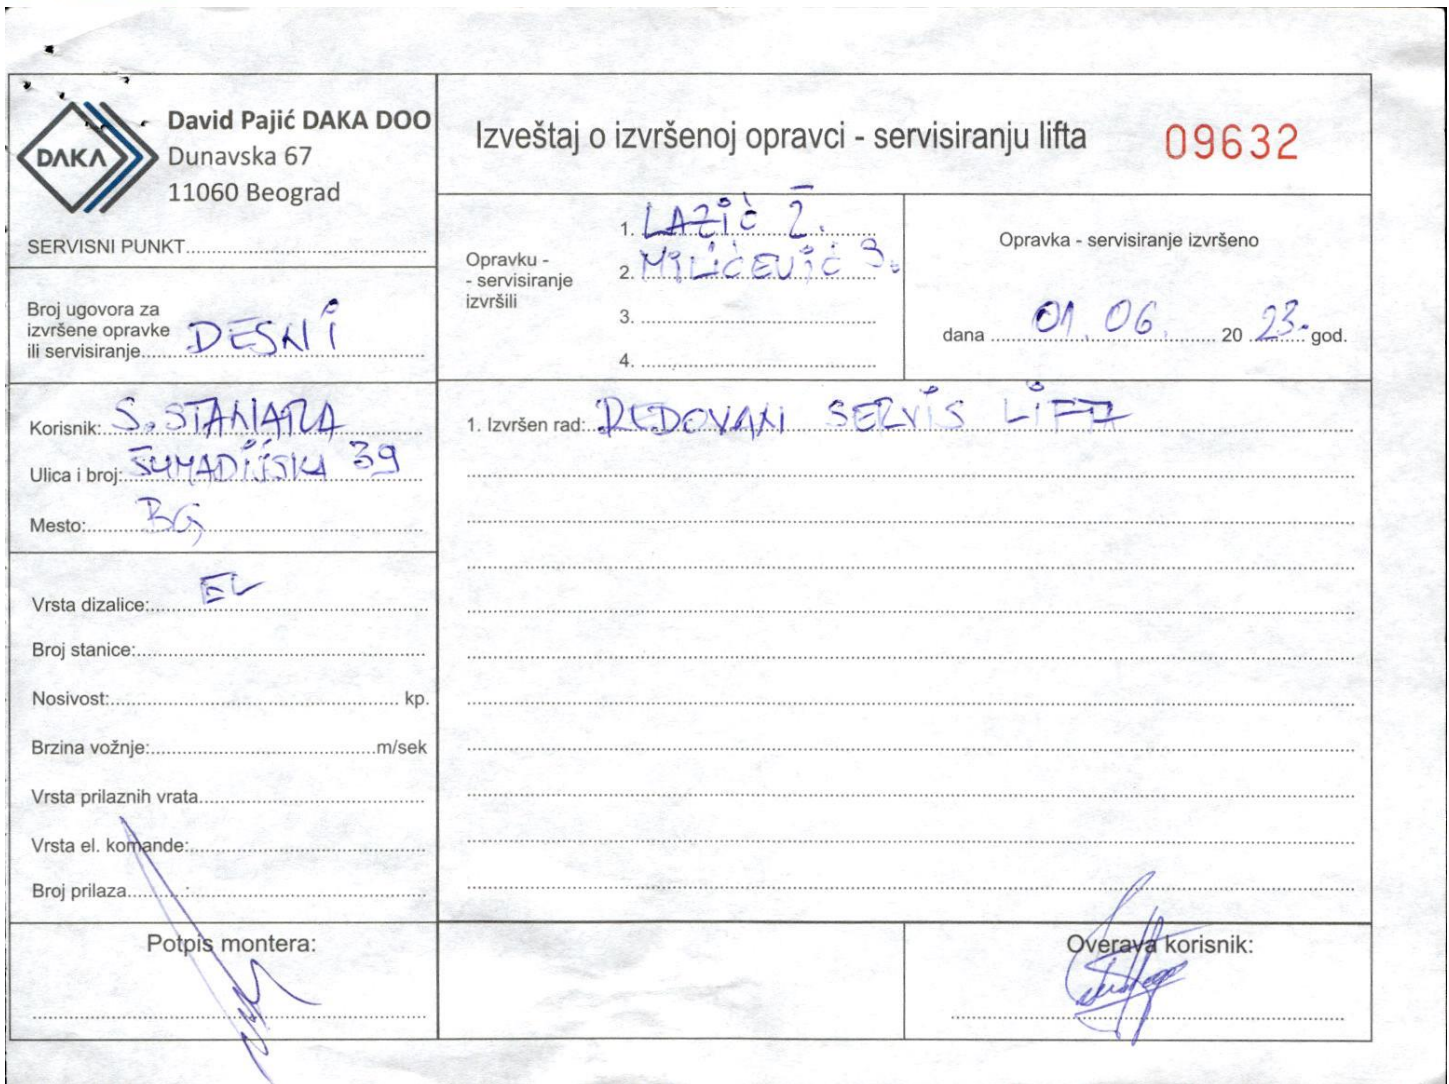 DAKA
David Pajić DAKA DOO
Dunavska 67
11060 Beograd
SERVISNI PUNKT
Izveštaj o izvršenoj opravci - servisiranju lifta
09632
Broj ugovora za
izvršene opravke
ili servisiranje DESNI
Opravku -
- servisiranje
izvršili
1. LAZIĆ Ž.
2. MILIĆEVIĆ
3.
4.
Opravka - servisiranje izvršeno
dana 01.06. 20 23. god.
Korisnik: S. STANARA
Ulica i broj: ŠUMADIJSKA 39
Mesto: BG
1. Izvršen rad: REDOVANI SERVIS LIFTA
Vrsta dizalice: EL
Broj stanice:
Nosivost: kp.
Brzina vožnje: m/sek
Vrsta prilaznih vrata
Vrsta el. komande:
Broj prilaza :
Potpis montera:
Overava korisnik: